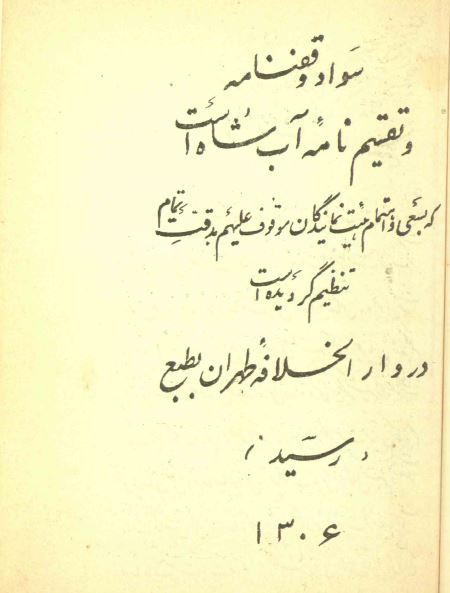 سواد وقفنامه
و تقسیم نامهٔ آب شاه است
که بسعی و اهتمام هیئت نمایندگان موقوف علیهم بدقت تمام
تنظیم گردیده است
در دار الخلافهٔ طهران بطبع
رسید
۱۳۰۶